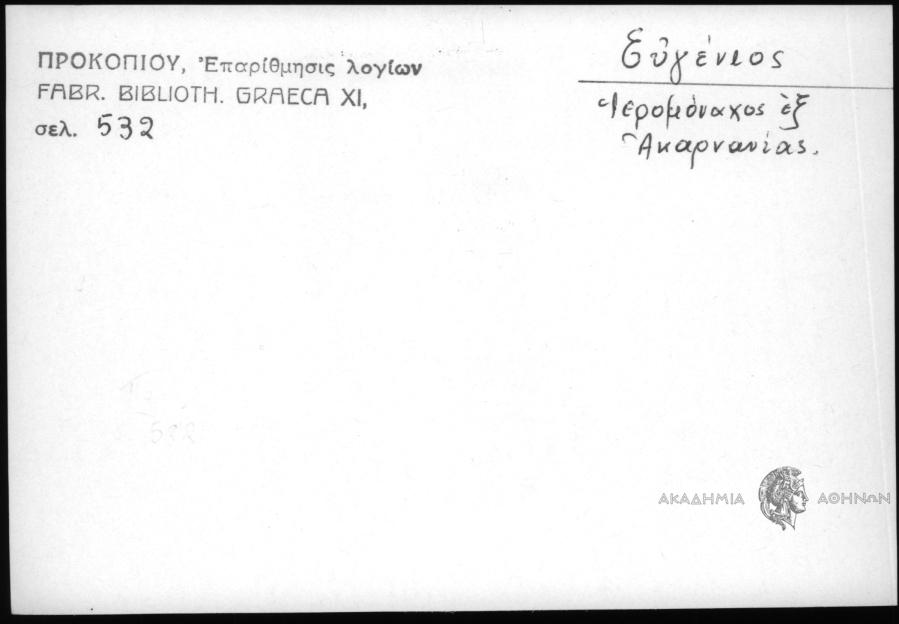 ΠΡΟΚΟΠΙΟΥ, Ἐπαρίθμησις λογίων
FABR. BIBLIOTH. GRAECA XI,
σελ. 532
Εὐγένιος
Ἱερομόναχος ἐξ
Ἀκαρνανίας.
532
ΑΚΑΔΗΜΙΑ ΑΘΗΝΩΝ